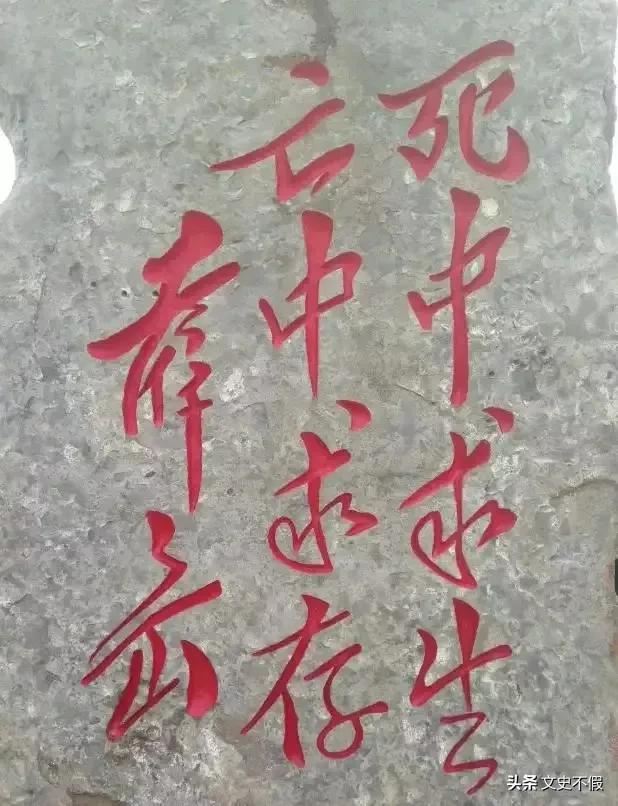 死中求生
亡中求存
薛岳
头条 文史不假